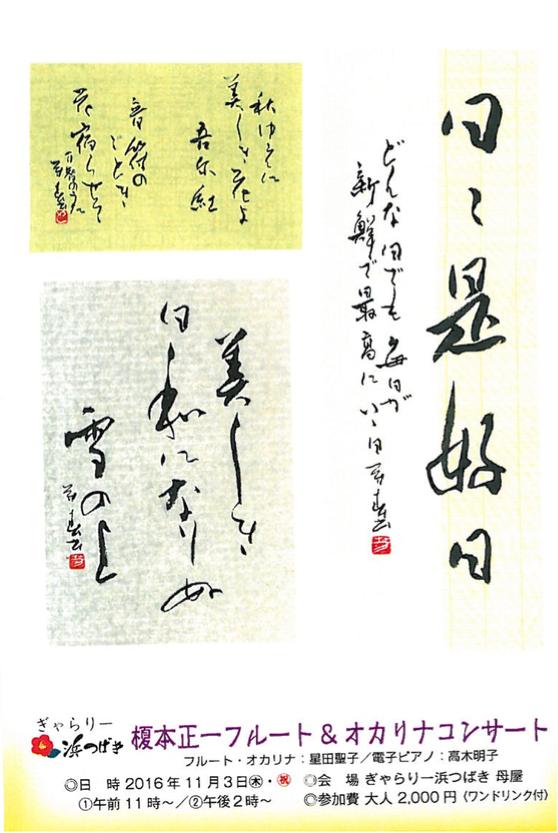 日々是好日
どんな日でも毎日が
新鮮で最高にいい日
秋ゆえに
美しき花よ
吾亦紅
音符の
ごとき
美しき
日和になりぬ
雪の上
ぎゃらりー
浜つばき
榎本正一フルート&オカリナコンサート
フルート・オカリナ：星田聖子／電子ピアノ：高木明子
◎日　時 2016年11月3日㊍・㊗
①午前11時～／②午後2時～
◎会　場 ぎゃらりー浜つばき 母屋
◎参加費 大人 2,000円〈ワンドリンク付〉